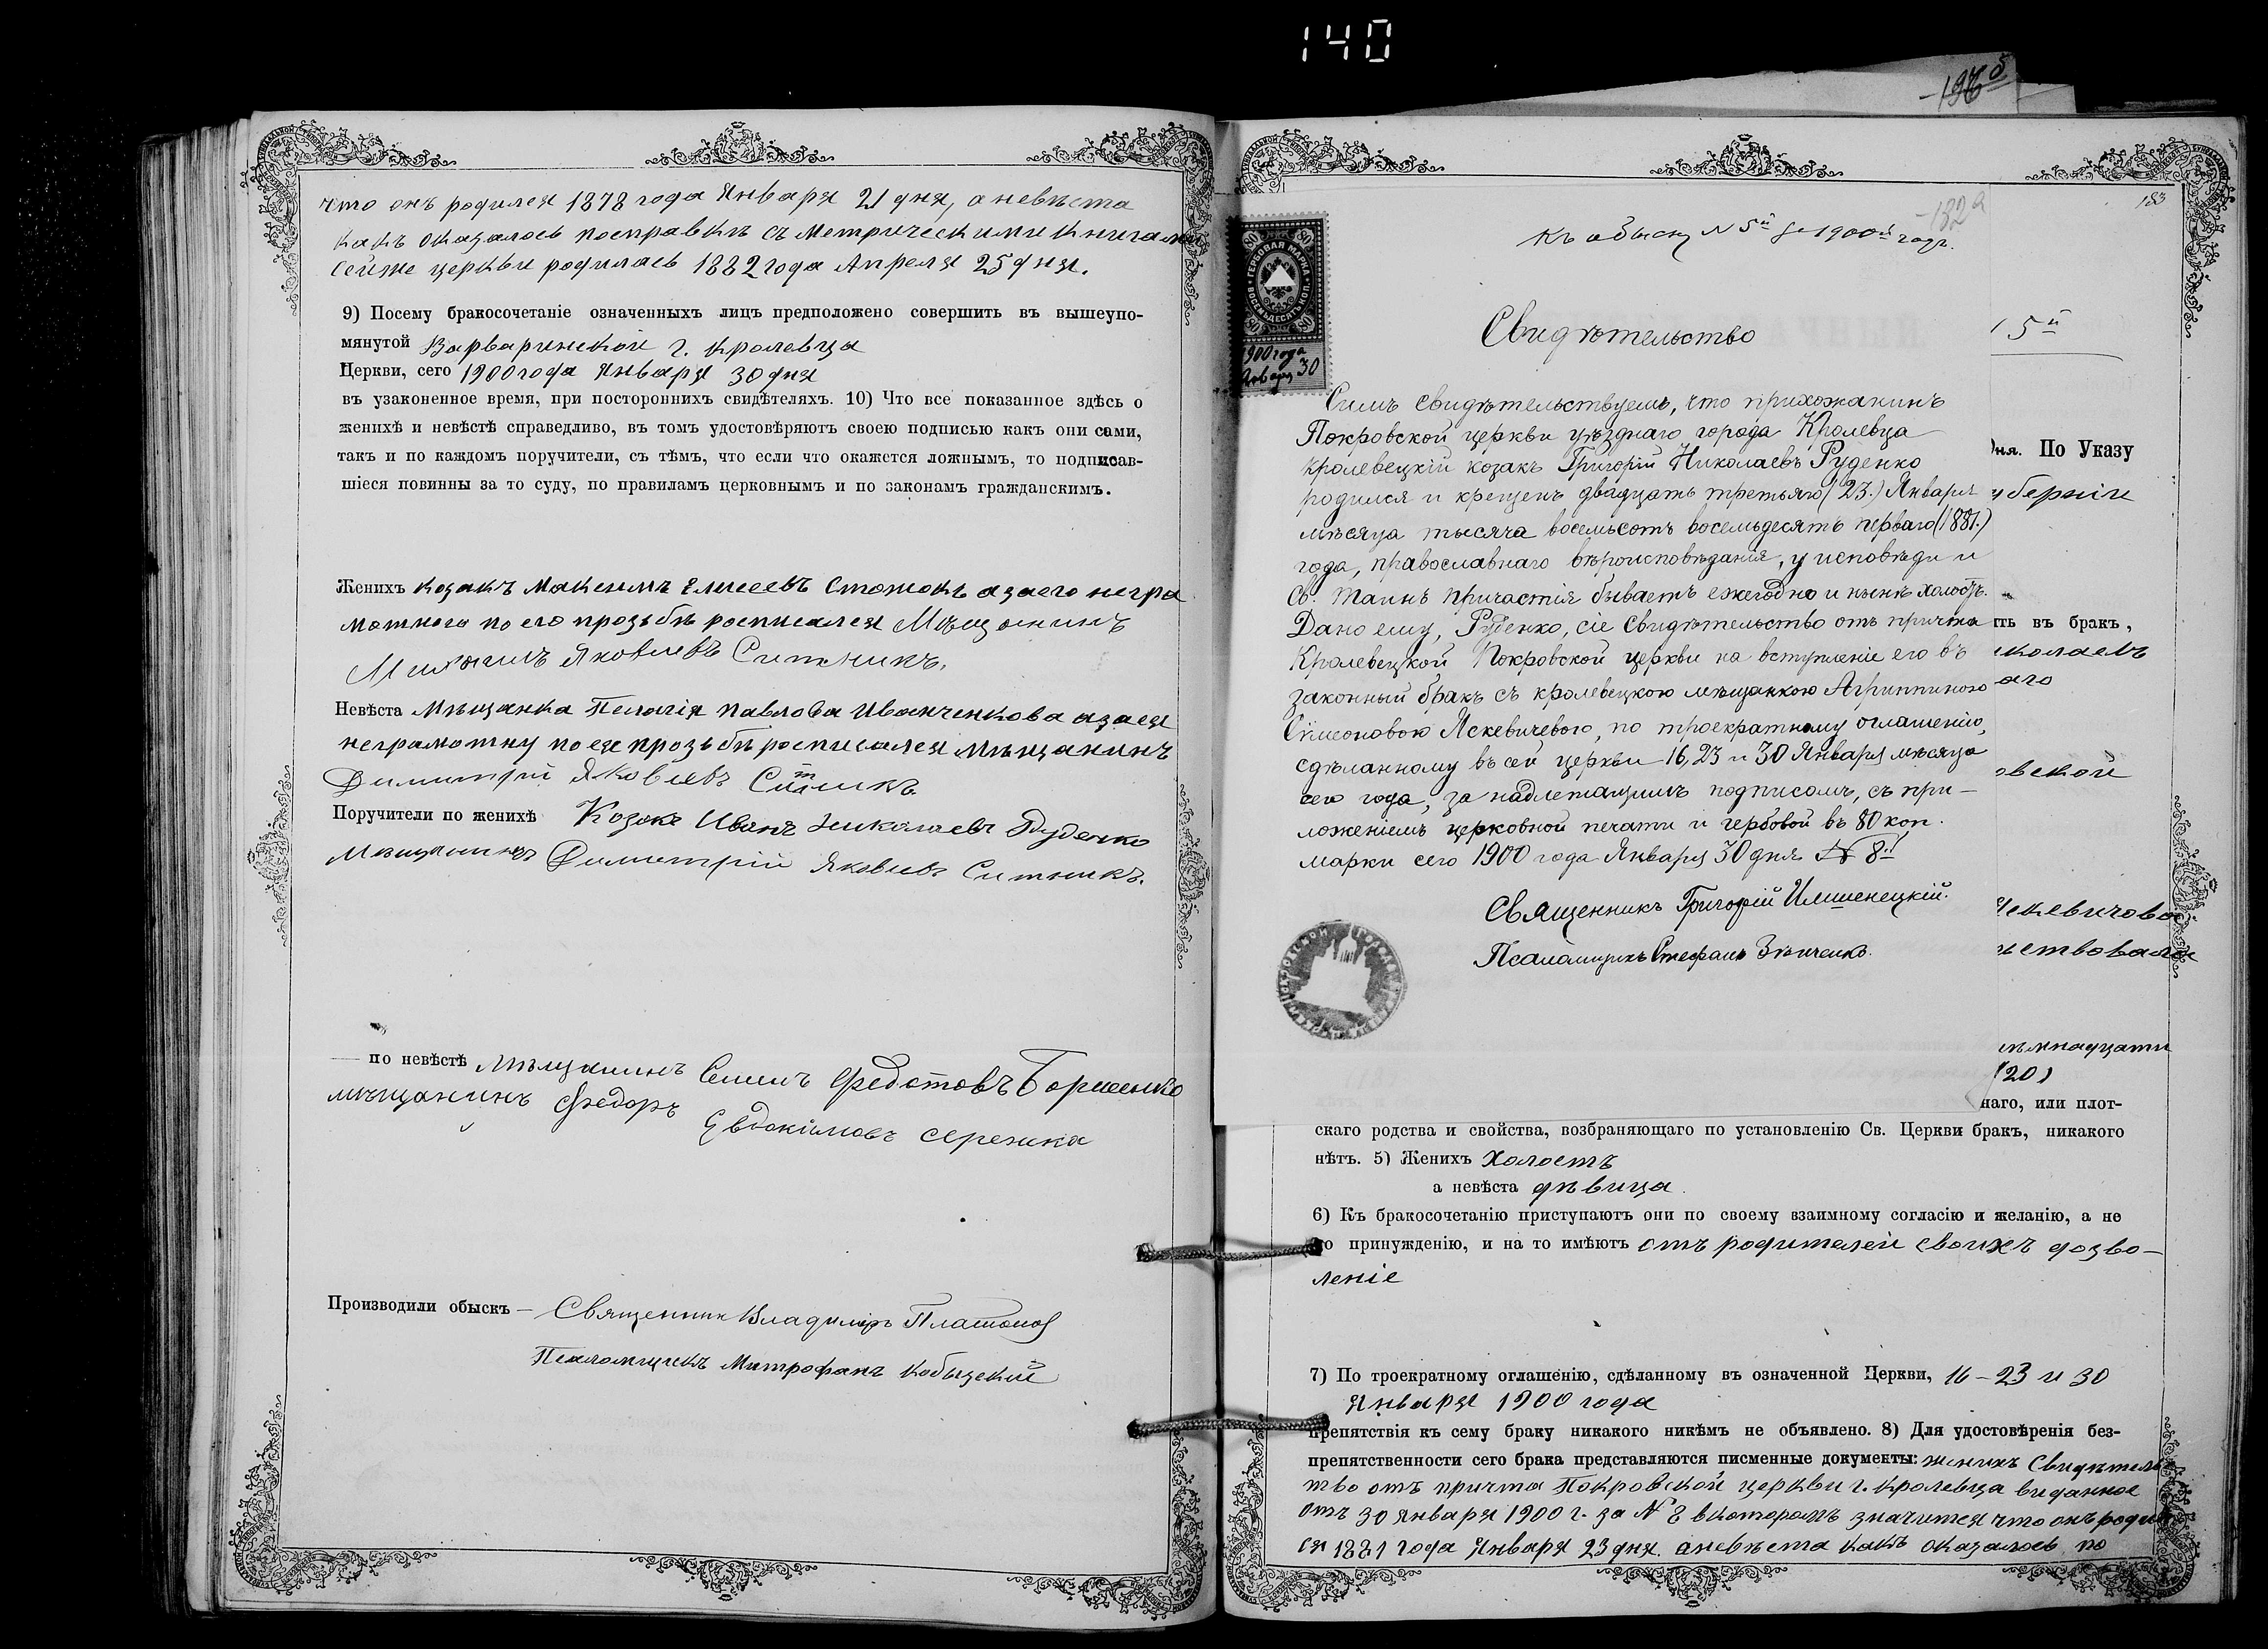 140
что онъ родился 1878 года Января 21 дня, а невѣста
какъ оказалось посправкѣ съ Метрическими книгами
сейже церкви родилась 1882 года Апреля 25 дня.
9) Посему бракосочетаніе означенныхъ лицъ предположено совершить въ вышеупо-
мянутой Варваринской г. Кролевца
Церкви, сего 1900 года Января 30 дня
въ узаконенное время, при постороннихъ свидѣтеляхъ. 10) Что все показанное здѣсь о
женихѣ и невѣстѣ справедливо, въ томъ удостовѣряютъ своею подписью какъ они сами,
такъ и по каждомъ поручители, съ тѣмъ, что если что окажется ложнымъ, то подписав-
шіеся повинны за то суду, по правиламъ церковнымъ и по законамъ гражданскимъ.
Женихъ козакъ Максимъ Елисеевъ Стотокъ азаего негра
мотного по его прозьбѣ росписался Мѣщанинъ
Яковлевъ Ситникъ.
Невѣста Мѣщанка Пелагія Павлова Иванченкова азаея
неграмотну по ея прозьбѣ росписался мѣщанинъ
Димитрій Яковлевъ Ситникъ
Поручители по женихѣ Козакъ Иванъ Николаевъ Руденко
Мѣщанинъ Димитрій Яковлевъ Ситникъ.
по невѣстѣ Мѣщанинъ Семенъ Федотовъ
мѣщанинъ Федоръ Евдокімовъ
Производили обыскъ — Священникъ Владиміръ Платонов
Псаломщикъ Митрофанъ Кобыщекій
196б
183
182а
Къ обыску № 5й за 1900й годъ.
80 80
ГЕРБОВАЯ МАРКА
ВОСЕМЬДЕСЯТЪ КОП.
80 80
1900 года
Января 30
Свидѣтельство
Симъ свидѣтельствуемъ, что прихожанинъ
Покровской церкви уѣзднаго города Кролевца
кролевецкій козакъ Григорій Николаевъ Руденко
родился и крещенъ двадцать третьяго (23.) Января
мѣсяца тысяча восемьсотъ восемьдесятъ перваго (1881.)
года, православнаго вѣроисповѣданія, у исповѣди и
Св. Таинъ причастія бываетъ ежегодно и нынѣ холостъ.
Дано ему, Руденко, сіе свидѣтельство отъ причта
Кролевецкой Покровской церкви на вступленіе его въ
законный бракъ съ кролевецкою мѣщанкою Агриппиною
Симеоновою Яскевичевою, по троекратному оглашенію,
сдѣланному въ сей церкви 16, 23 и 30 Января мѣсяца
сего года, за надлежащимъ подписомъ, съ при-
ложеніемъ церковной печати и гербовой въ 80 коп.
марки сего 1900 года Января 30 дня № 8й
Священникъ Григорій
Псаломщикъ Стефанъ Зѣнченко.
5й
дня. По Указу
уберніи
ть въ бракъ,
иколаевъ
аго
овской
1201
наго, или плот-
скаго родства и свойства, возбраняющаго по установленію Св. Церкви бракъ, никакого
нѣтъ. 5) Женихъ Холостъ
а невѣста дѣвица
6) Къ бракосочетанію приступаютъ они по своему взаимному согласію и желанію, а не
по принужденію, и на то имѣютъ отъ родителей своихъ дозво-
леніе
7) По троекратному оглашенію, сдѣланному въ означенной Церкви, 16 – 23 и 30
Января 1900 года
препятствія къ сему браку никакого никѣмъ не объявлено. 8) Для удостовѣренія без-
препятственности сего брака представляются писменные документы: женихъ Свидѣтель
тво отъ причта Покровской церкви г. Кролевца виданное
отъ 30 января 1900 г. за № 8 вкоторомъ значится что онъ роди
ся 1881 года Января 23 дня. аневѣста какъ оказалось по